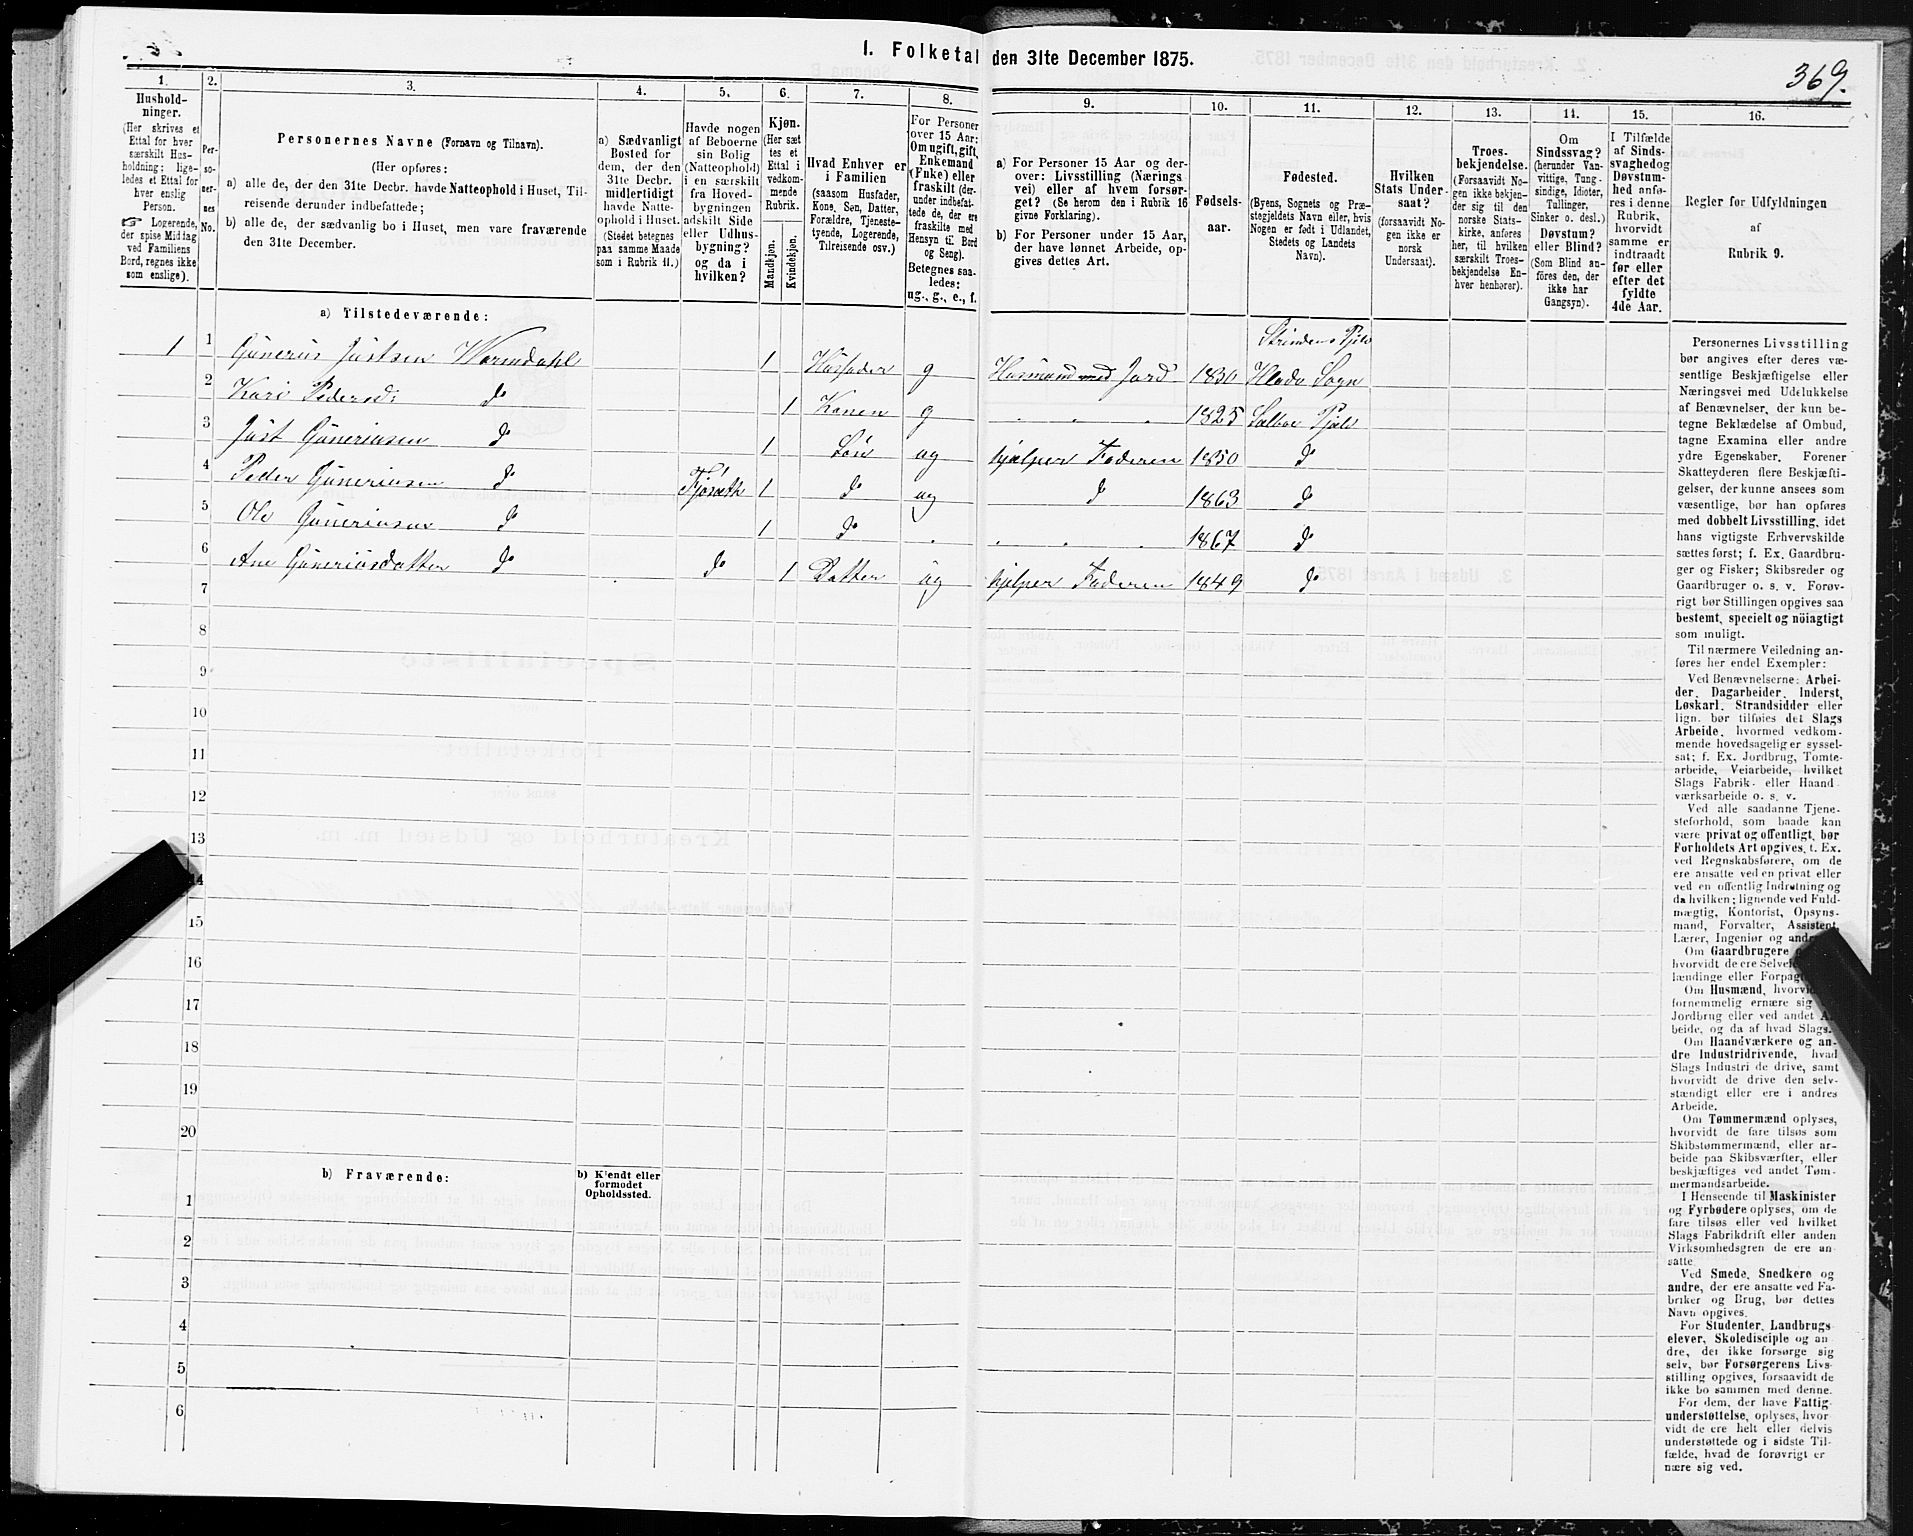 I. Folketal den 31te December 1875.
369.
1. 2. 3. 4. 5. 6. 7. 8. 9. 10. 11. 12. 13. 14. 15. 16.
Hushold-
ninger.
(Her skrives et
Ettal for hver
særskilt Hus-
holdning; lige-
ledes et Ettal for
hver enslig
Person.
☞ Logerende,
der spise Middag
ved Familiens
Bord, regnes ikke
som enslige).
Per-
so-
ner-
nes
No.
Personernes Navne (Fornavn og Tilnavn).
(Her opføres:
a) alle de, der den 31te Decbr. havde Natteophold i Huset, Til-
reisende derunder indbefattede;
b) alle de, der sædvanlig bo i Huset, men vare fraværende
den 31te December.
a) Sædvanligt
Bosted for
dem, der den
31te Decbr.
midlertidigt
havde Natte-
ophold i Huset.
(Stedet betegnes
paa samme Maade
som i Rubrik 11.)
Havde nogen
af Beboerne
sin Bolig
(Natteophold)
i en særskilt
fra Hoved-
bygningen
adskilt Side
eller Udhus-
bygning?
og da i
hvilken?
Kjøn.
(Her sæt
tes et
Ettal i
vedkom-
mende
Rubrik.
Mandkjøn.
Kvindekjøn.
Hvad Enhver er
i Familien
(saasom Husfader,
Kone, Søn, Datter,
Forældre, Tjeneste-
tyende, Logerende,
Tilreisende osv.)
For Personer
over 15 Aar:
Om ugift, gift,
Enkemand
(Enke) eller
fraskilt (der-
under indbefat-
tede de, der ere
fraskilte med
Hensyn til Bord
og Seng).
Betegnes saa-
ledes:
ug., g., e., f.
a) For Personer 15 Aar og der-
over: Livsstilling (Nærings
vei) eller af hvem forsør-
get? (Se herom den i Rubrik 16
givne Forklaring).
b) For Personer under 15 Aar,
der have lønnet Arbeide, op-
gives dettes Art.
Fødsels-
aar.
Fødested.
(Byens, Sognets og Præ-
stegjeldets Navn eller, hvis
Nogen er født i Udlandet,
Stedets og Landets
Navn).
Hvilken
Stats Under-
saat?
(forsaavidt No-
gen ikke er
norsk
Undersaat).
Troes-
bekjendelse.
(Forsaavidt No-
gen ikke bekjen-
der sig til den
norske Stats-
kirke, anføres
her, til hvilken
særskilt Troes-
bekjendelse En-
hver henhører).
Om
Sindssvag?
(herunder Van-
vittige, Tung-
sindige, Idioter,
Tullinger,
Sinker o. desl.)
Døvstum?
eller Blind?
(Som Blind an-
føres den, der
ikke har
Gangsyn).
I Tilfælde
af Sinds-
svaghed og
Døvstum-
hed anfø-
res i denne
Rubrik,
hvorvidt
samme er
indtraadt
før eller
efter det
fyldte
4de Aar.
Regler for Udfyldningen
af
Rubrik 9.
a) Tilstedeværende:
Strindens Pjeld
1 1 Gunerius Justsen Warmdahl 1 Husfader g Husmand med Jord 1830 Hlade Sogn
2 Kari Pedersd: do 1 Konen g " " " 1825 Selboe Pjeld
3 Just Guneriusen do 1 Søn ug hjælper Faderen 1850 do
4 Peder Guneriusen do Fjøsæth 1 do ug do 1863 do
5 Ole Guneriusen do 1 do " " " " 1867 do
6 Ane Guneriusdatter do do 1 Datter ug hjelper Faderen 1849 do
7
8
9
10
11
12
13
14
15
16
17
18
19
20
b) Fraværende:
b) Kjendt eller
formodet
Opholdssted.
1
2
3
4
5
6
Personernes Livsstilling
bør angives efter deres væ-
sentlige Beskjæftigelse eller
Næringsvei med Udelukkelse
af Benævnelser, der kun be-
tegne Beklædelse af Ombud,
tagne Examina eller andre
ydre Egenskaber. Forener
Skatteyderen flere Beskjæfti-
gelser, der kunne ansees som
væsentlige, bør han opføres
med dobbelt Livsstilling, idet
hans vigtigste Erhvervskilde
sættes først; f. Ex. Gaardbru-
ger og Fisker; Skibsreder og
Gaardbruger o. s. v. Forøv-
rigt bør Stillingen opgives saa
bestemt, specielt og nöiagtigt
som muligt.
Til nærmere Veiledning an-
føres her endel Exempler:
Ved Benævnelserne: Arbei-
der, Dagarbeider, Inderst,
Løskarl, Strandsidder eller
lign. bør tilføies det Slags
Arbeide, hvormed vedkom-
mende hovedsagelig er syssel-
sat; f. Ex. Jordbrug, Tomte-
arbeide, Veiarbeide, hvilket
Slags Fabrik- eller Haand
værksarbeide o. s. v.
Ved alle saadanne Tjene-
steforhold, som baade kan
være privat og offentligt, bør
Forholdets Art opgives, t. Ex.
ved Regnskabsførere, om de
ere ansatte ved en privat eller
ved en offentlig Indretning og
da hvilken; lignende ved Fuld-
mægtig, Kontorist, Opsyns-
mand, Forvalter, Assistent,
Lærer, Ingeniør og andre
Om Gaardbrugere
hvorvidt de ere Selveie
lændinge eller Forpag
Om Husmænd, hvorvi
fornemmelig ernære sig
Jordbrug eller ved andet A
beide, og da af hvad Slags.
Om Haandværkere og an-
dre Industridrivende, hvad
Slags Industri de drive, samt
hvorvidt de drive den selv-
stændigt eller ere i andres
Arbeide.
Om Tømmermænd oplyses,
hvorvidt de fare tilsøs som
Skibstømmermænd, eller ar-
beide paa Skibsværfter, eller
beskjæftiges ved andet Tøm-
mermandsarbeide.
I Henseende til Maskinister
og Fyrbødere oplyses, om de
fare tilsøs eller ved hvilket
Slags Fabrikdrift eller anden
Virksomhedsgren de ere an-
satte.
Ved Smede, Snedkere og
andre, der ere ansatte ved Fa-
briker og Brug, bør dettes
Navn opgives.
For Studenter, Landbrugs
elever, Skoledisciple og an
dre, der ikke forsørge sig
selv, bør Forsørgerens Livs-
stilling opgives, forsaavidt de
ikke bo sammen med denne.
For dem, der have Fattig-
understøttelse, oplyses, hvor-
vidt de ere helt eller delvis
understøttede og i sidste Til-
fælde, hvad de forøvrigt er
nære sig ved.